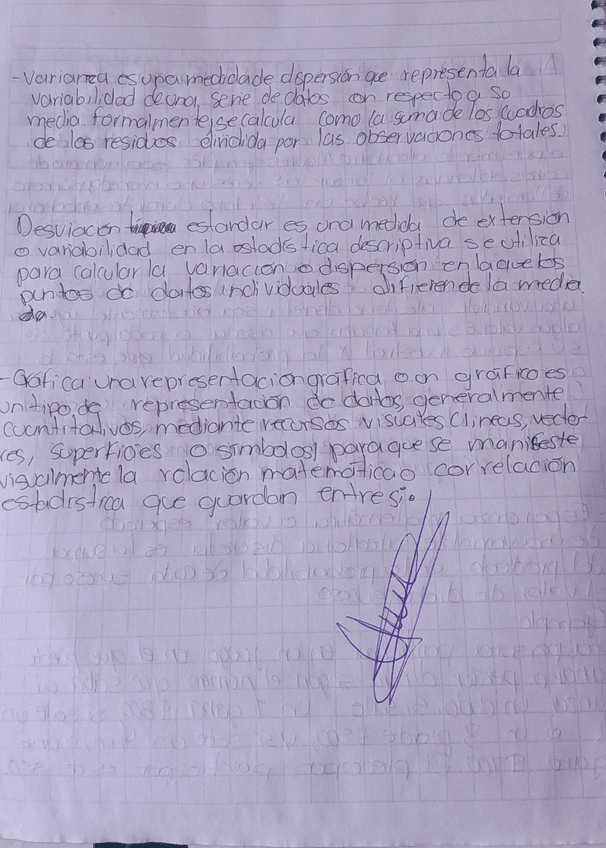 -Varianza es una medida de dispersión que representa la
variabilidad de una serie de datos con respecto a so
media. formalmente, se calcula como la suma de los cuadros
de los residuos dividida por las observaciones totales.
Desviacen estandar es una medida de extension
o variabilidad en la estadistica descriptiva se utiliza
para calcular la variacion o dispersion en la que los
puntos de datos individuales difieren de la media.
-Gráfica: una representacion grafica o un gráfico es
un tipo de representación de datos, generalmente
cuantitativos, mediante recursos visuales (lineas, vecto-
res, superficies o simbolos) para que se manifieste
visualmente la relación matemática o correlacion
estadistica que guardan entre si.